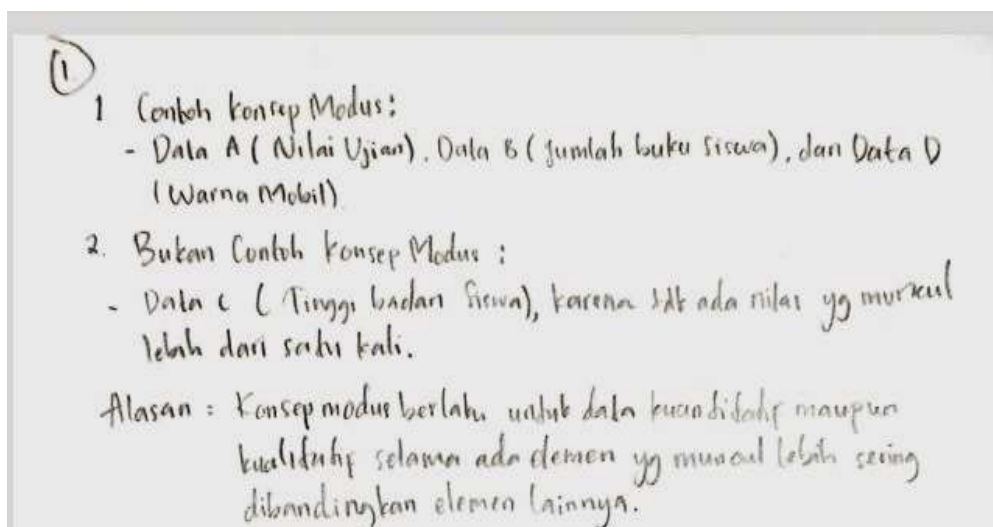 ①
1 Contoh Konsep Modus:
- Data A (Nilai Ujian), Data B (Jumlah buku siswa), dan Data D
(Warna Mobil)
2. Bukan Contoh Konsep Modus :
- Data C (Tinggi badan siswa), karena tdk ada nilai yg muncul
lebih dari satu kali.
Alasan : Konsep modus berlaku untuk data kuantitatif maupun
kualitatif selama ada elemen yg muncul lebih sering
dibandingkan elemen lainnya.